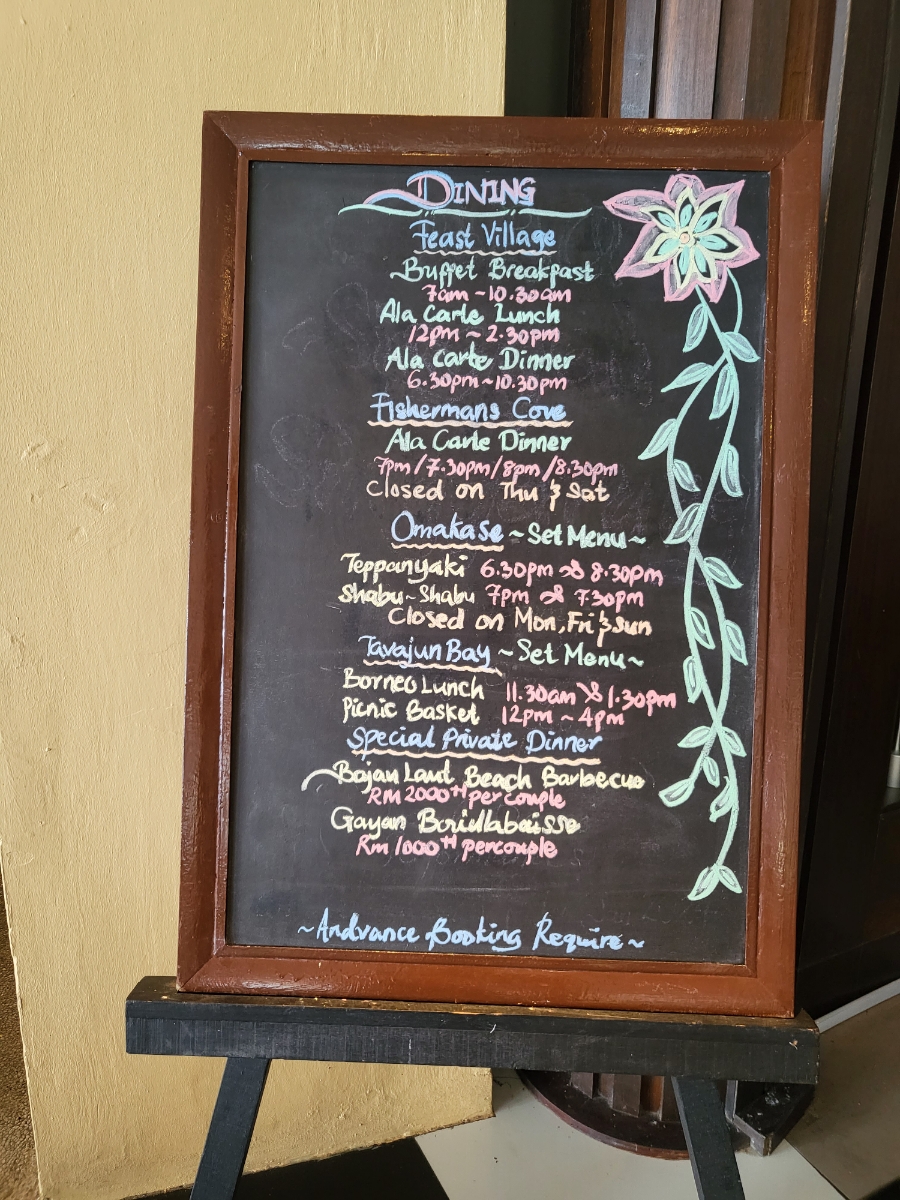 DINING
Feast Village
Buffet Breakfast
7am ~ 10.30am
Ala Carte Lunch
12pm ~ 2.30pm
Ala Carte Dinner
6.30pm ~ 10.30pm
Fishermans Cove
Ala Carte Dinner
7pm / 7.30pm / 8pm / 8.30pm
Closed on Thu & Sat
Omakase ~ Set Menu ~
Teppanyaki 6.30pm & 8.30pm
Shabu ~ Shabu 7pm & 7.30pm
Closed on Mon, Fri & Sun
Tavajun Bay ~ Set Menu ~
Borneo Lunch 11.30am & 1.30pm
Picnic Basket 12pm ~ 4pm
Special Private Dinner
Bajau Laut Beach Barbecue
RM 2000++ per couple
Gayan
RM 1000++ per couple
~ Andvance Booking Require ~